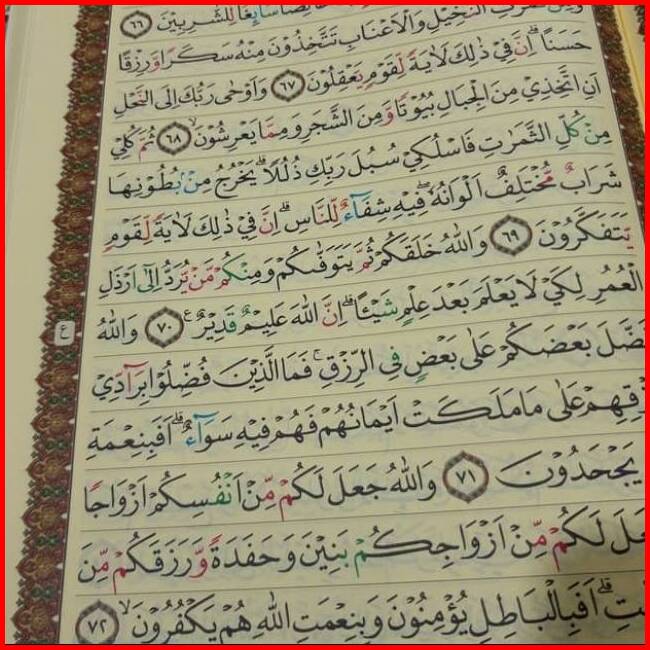 خَالِصًا سَآئِغًا لِّلشّٰرِبِيْنَ ﴿٦٦﴾
وَمِنْ ثَمَرٰتِ النَّخِيْلِ وَالْاَعْنَابِ تَتَّخِذُوْنَ مِنْهُ سَكَرًا وَّرِزْقًا
حَسَنًاۗ اِنَّ فِيْ ذٰلِكَ لَاٰيَةً لِّقَوْمٍ يَّعْقِلُوْنَ ﴿٦٧﴾ وَاَوْحٰى رَبُّكَ اِلَى النَّحْلِ
اَنِ اتَّخِذِيْ مِنَ الْجِبَالِ بُيُوْتًا وَّمِنَ الشَّجَرِ وَمِمَّا يَعْرِشُوْنَۙ ﴿٦٨﴾ ثُمَّ كُلِيْ
مِنْ كُلِّ الثَّمَرٰتِ فَاسْلُكِيْ سُبُلَ رَبِّكِ ذُلُلًاۗ يَخْرُجُ مِنْۢ بُطُوْنِهَا
شَرَابٌ مُّخْتَلِفٌ اَلْوَانُهٗ فِيْهِ شِفَاۤءٌ لِّلنَّاسِۗ اِنَّ فِيْ ذٰلِكَ لَاٰيَةً لِّقَوْمٍ
يَّتَفَكَّرُوْنَ ﴿٦٩﴾ وَاللّٰهُ خَلَقَكُمْ ثُمَّ يَتَوَفّٰىكُمْ وَمِنْكُمْ مَّنْ يُّرَدُّ اِلٰٓى اَرْذَلِ
الْعُمُرِ لِكَيْ لَا يَعْلَمَ بَعْدَ عِلْمٍ شَيْـًٔاۗ اِنَّ اللّٰهَ عَلِيْمٌ قَدِيْرٌ ࣖ ﴿٧٠﴾ وَاللّٰهُ
فَضَّلَ بَعْضَكُمْ عَلٰى بَعْضٍ فِى الرِّزْقِۚ فَمَا الَّذِيْنَ فُضِّلُوْا بِرَاۤدِّيْ
رِزْقِهِمْ عَلٰى مَا مَلَكَتْ اَيْمَانُهُمْ فَهُمْ فِيْهِ سَوَاۤءٌۗ اَفَبِنِعْمَةِ
يَجْحَدُوْنَ ﴿٧١﴾ وَاللّٰهُ جَعَلَ لَكُمْ مِّنْ اَنْفُسِكُمْ اَزْوَاجًا
وَّجَعَلَ لَكُمْ مِّنْ اَزْوَاجِكُمْ بَنِيْنَ وَحَفَدَةً وَّرَزَقَكُمْ مِّنَ
اَفَبِالْبَاطِلِ يُؤْمِنُوْنَ وَبِنِعْمَتِ اللّٰهِ هُمْ يَكْفُرُوْنَۙ ﴿٧٢﴾
ع